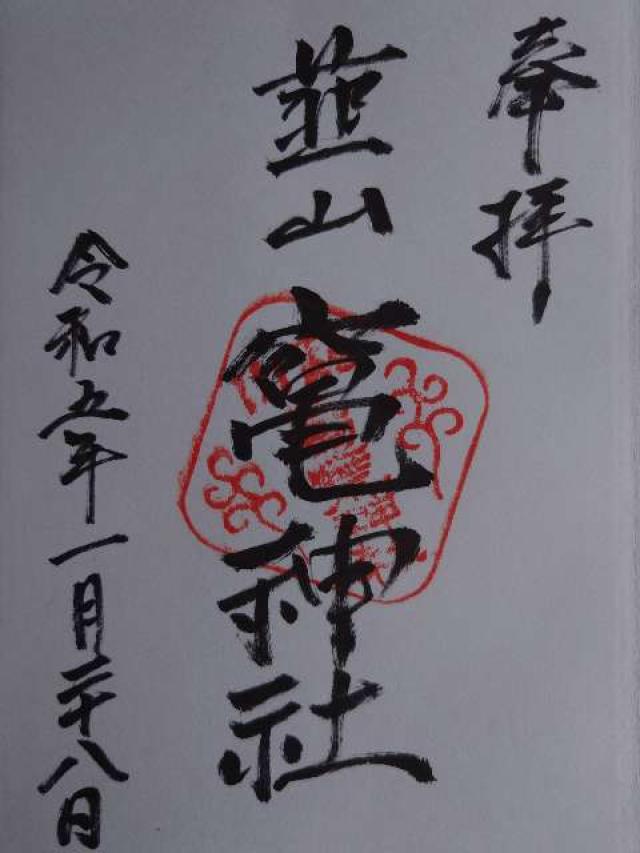 奉拝
韮山
竈神社
令和五年一月二十八日